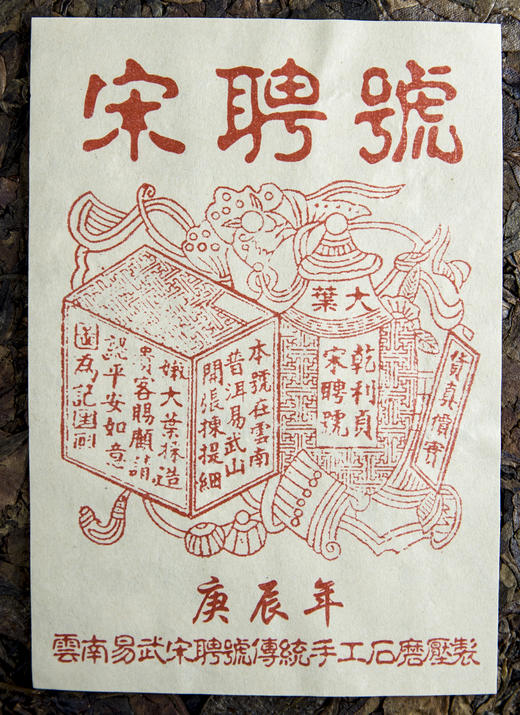 宋聘號
大葉
乾利貞
宋聘號
貨真價實
本號在雲南
普洱易武山
開張揀提細
嫩大葉採造
貴客賜顧請
認平安如意
圖為記
庚辰年
雲南易武宋聘號傳統手工石磨壓製